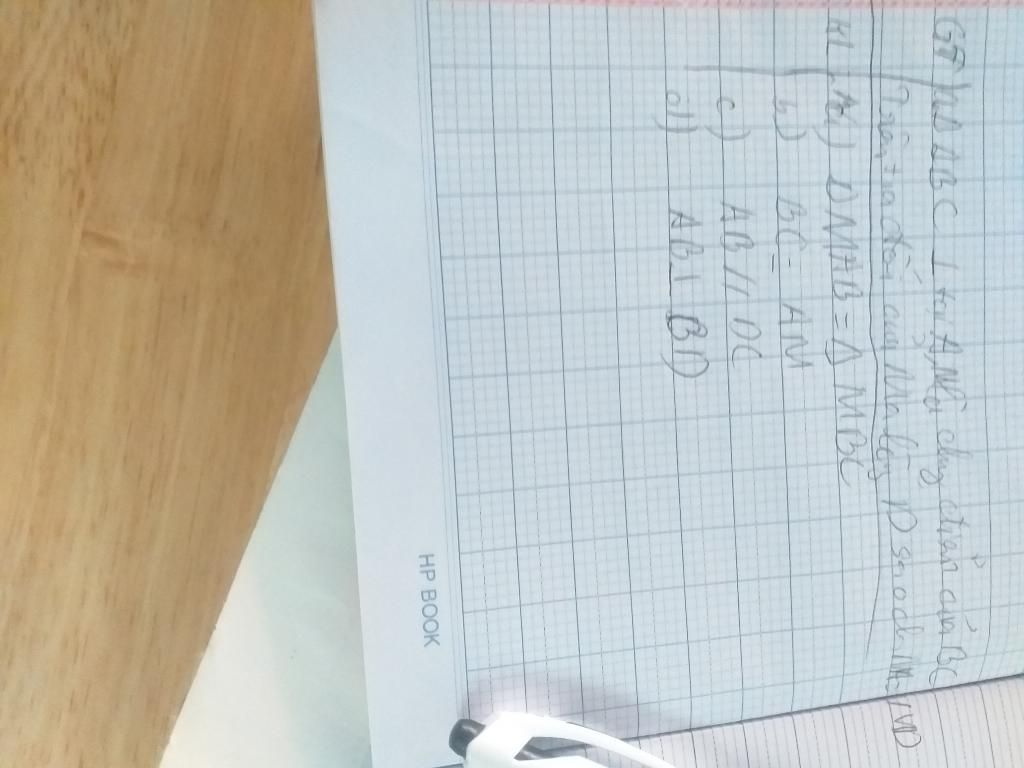 GT ΔABC ⊥ tại A, M là trung điểm của BC
Trên tia đối của MA lấy D sao cho MA = MD
KL a) ΔMAB = Δ MBC
b) BC = AM
c) AB // DC
d) AB ⊥ BD
HP BOOK